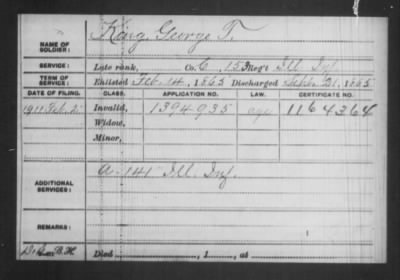 NAME OF SOLDIER: King George T.
SERVICE: Late rank, Co. C, 153 Reg't Ill. Inf.
TERM OF SERVICE: Enlisted Feb. 14, 1865 Discharged Sept. 21, 1865
DATE OF FILING. CLASS. APPLICATION NO. LAW. CERTIFICATE NO.
1911 Feb. 2 Invalid, 1394935 1164364
Widow,
Minor,
ADDITIONAL SERVICES: A. 141 Ill. Inf.
REMARKS:
Died , 1 , at